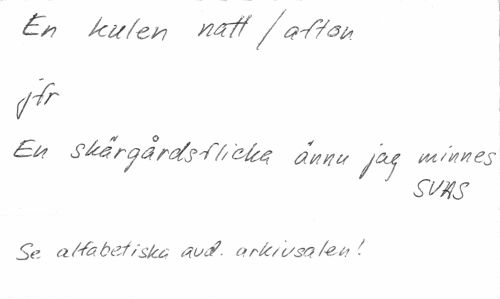 En kulen natt / afton
jfr
En skärgårdsflicka ännu jag minnes
SVAS
Se alfabetiska avd. arkivsalen!